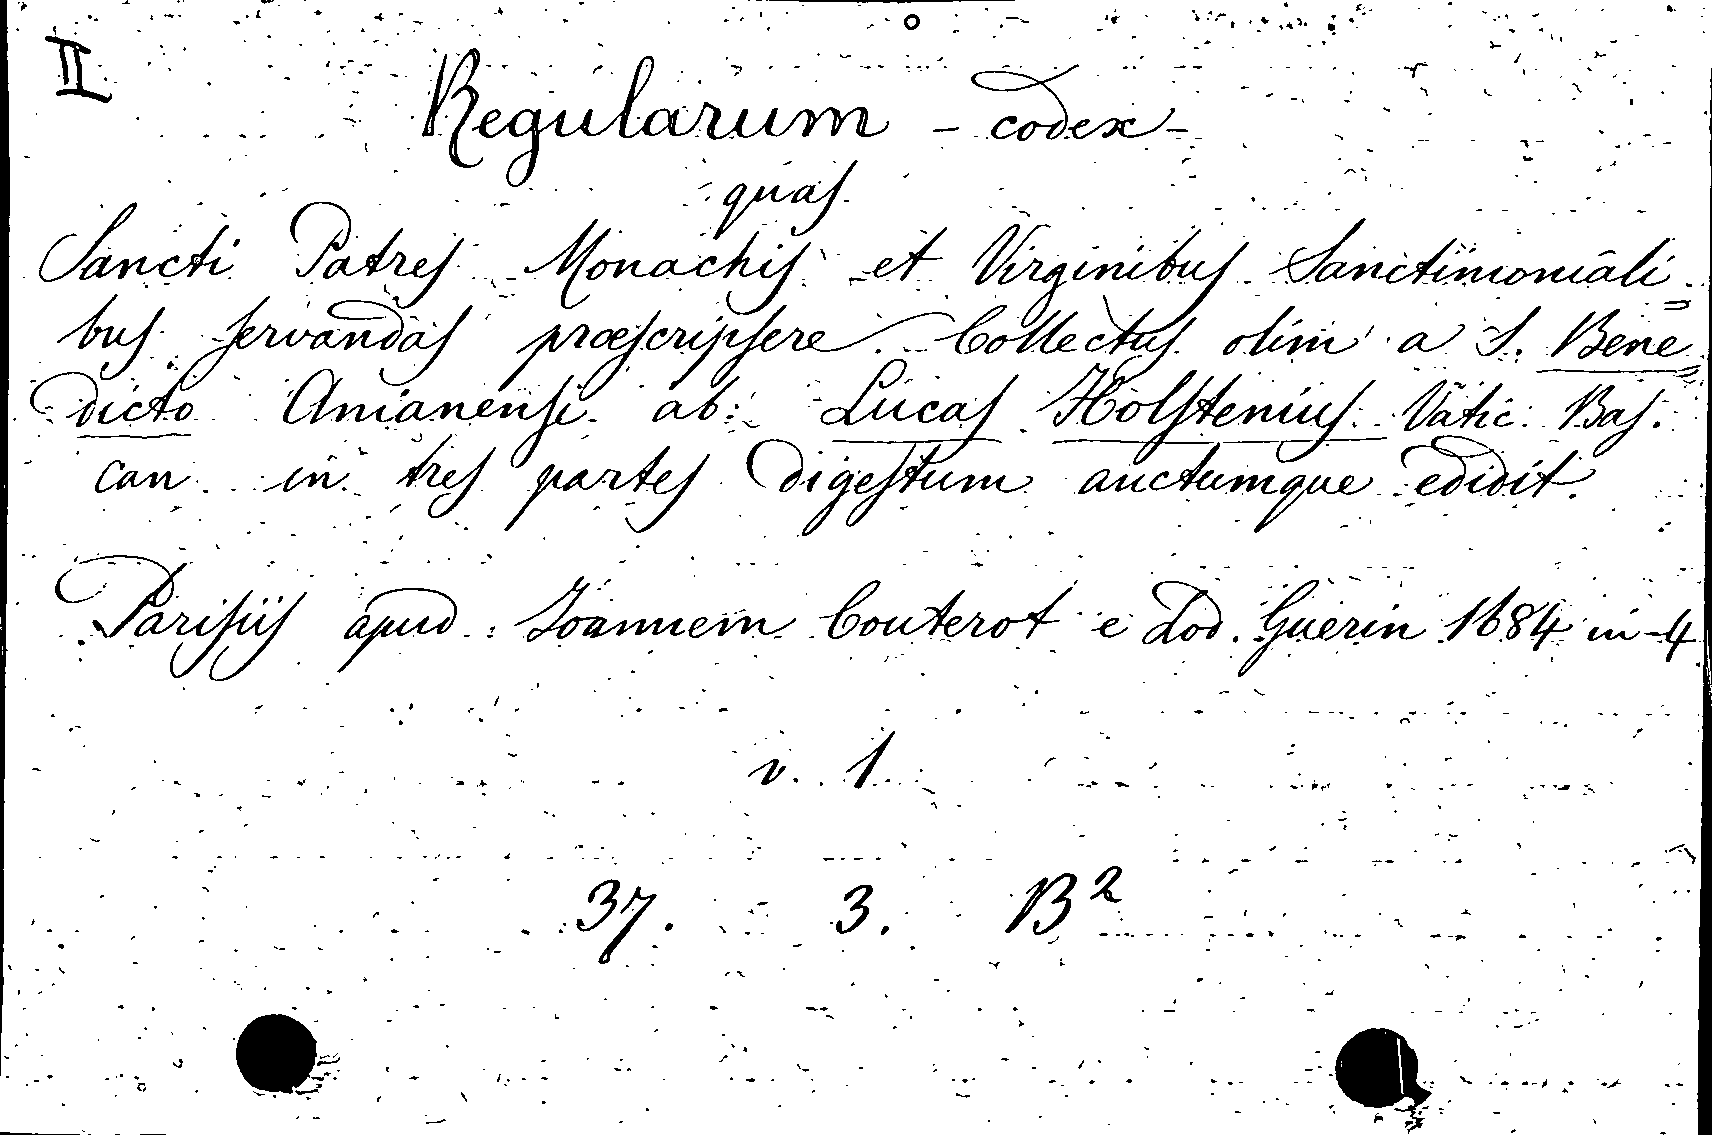 II
Regularum - codex -
quas
Sancti Patres Monachis et Virginibus Sanctimoniali=
bus servandas præscripsere. Collectus olim a S. Bene=
dicto Anianensi ab: Lucas Holstenius Vatic. Bas.
can in tres partes digestum auctumque edidit.
Parisiis apud Joannem Couterot e Lod. Guerin 1684 in-4
v. 1
37. 3. B²